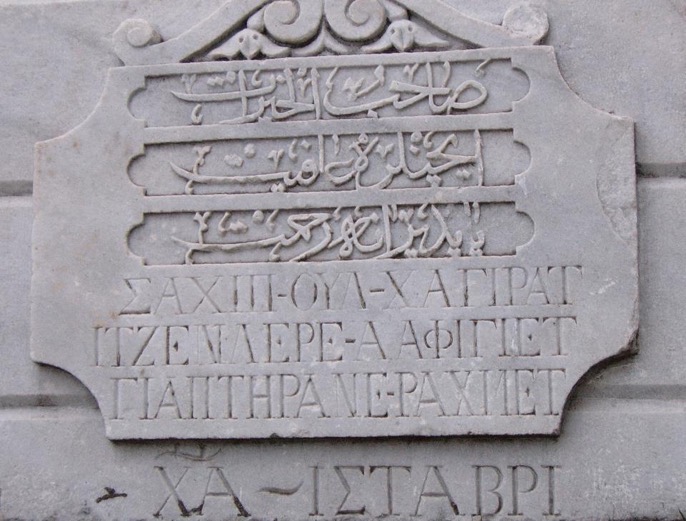 صاحب الخيرات
ایچنلره عافیت
یاپدیرانه رحمت
ΣΑΧΙΠ-ΟΥΛ-ΧΑΓΙΡΑΤ
ΙΤΖΕΝΛΕΡΕ-ΑΑΦΙΓΙΕΤ
ΓΙΑΠΤΗΡΑΝΕ-ΡΑΧΜΕΤ
ΧΑ~ΙΣΤΑΒΡΙ